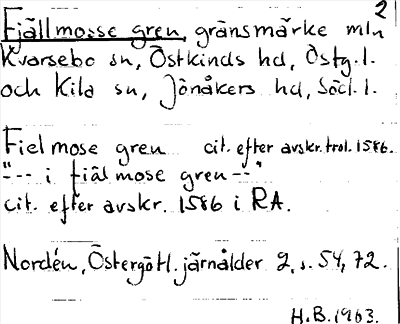 2
Fjällmosse gren, gränsmärke mln
Kvarsebo sn, Östkinds hd, Östg. l.
och Kila sn, Jönåkers hd, Södl. l.
Fiel mose gren cit. efter avskr. trol. 1586.
"--- i fiäl mose gren --"
cit. efter avskr. 1586 i RA.
Nordén, Östergötl. järnålder 2, s. 54, 72.
H.B. 1963.